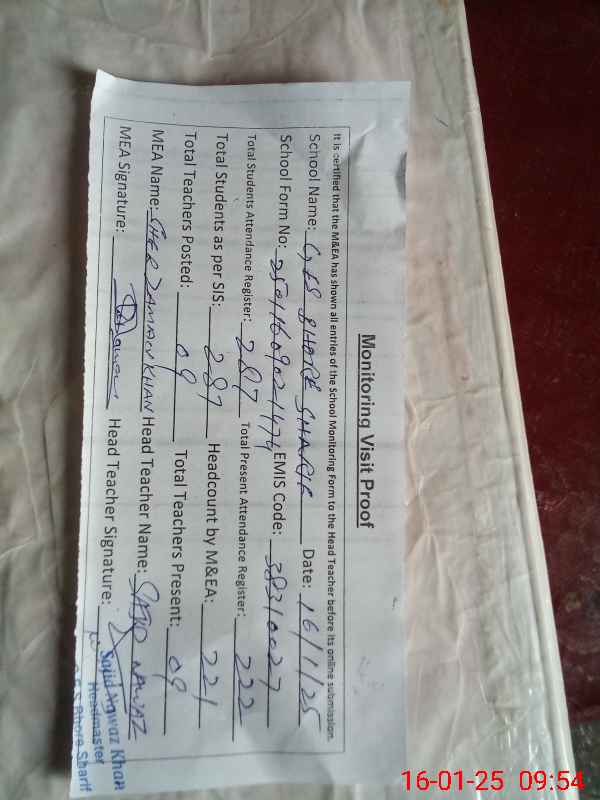 Monitoring Visit Proof
It is certified that the M&EA has shown all entries of the School Monitoring Form to the Head Teacher before its online submission.
School Name: GES BHORE SHARIF Date: 16/1/25
School Form No: EMIS Code: 38310027
Total Students Attendance Register: 287 Total Present Attendance Register: 222
Total Students as per SIS: 287 Headcount by M&EA: 221
Total Teachers Posted: 09 Total Teachers Present: 09
MEA Name: SHER ZAMAN KHAN Head Teacher Name: SAJID NAWAZ
MEA Signature: Head Teacher Signature:
Sajid Nawaz Khan
Headmaster
G.E.S Bhore Sharif
16-01-25 09:54